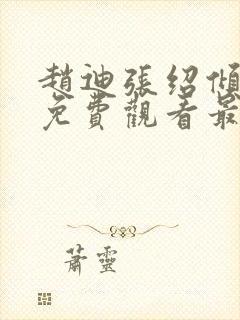 趙迪張紹傾
免費觀看最
蕭靈